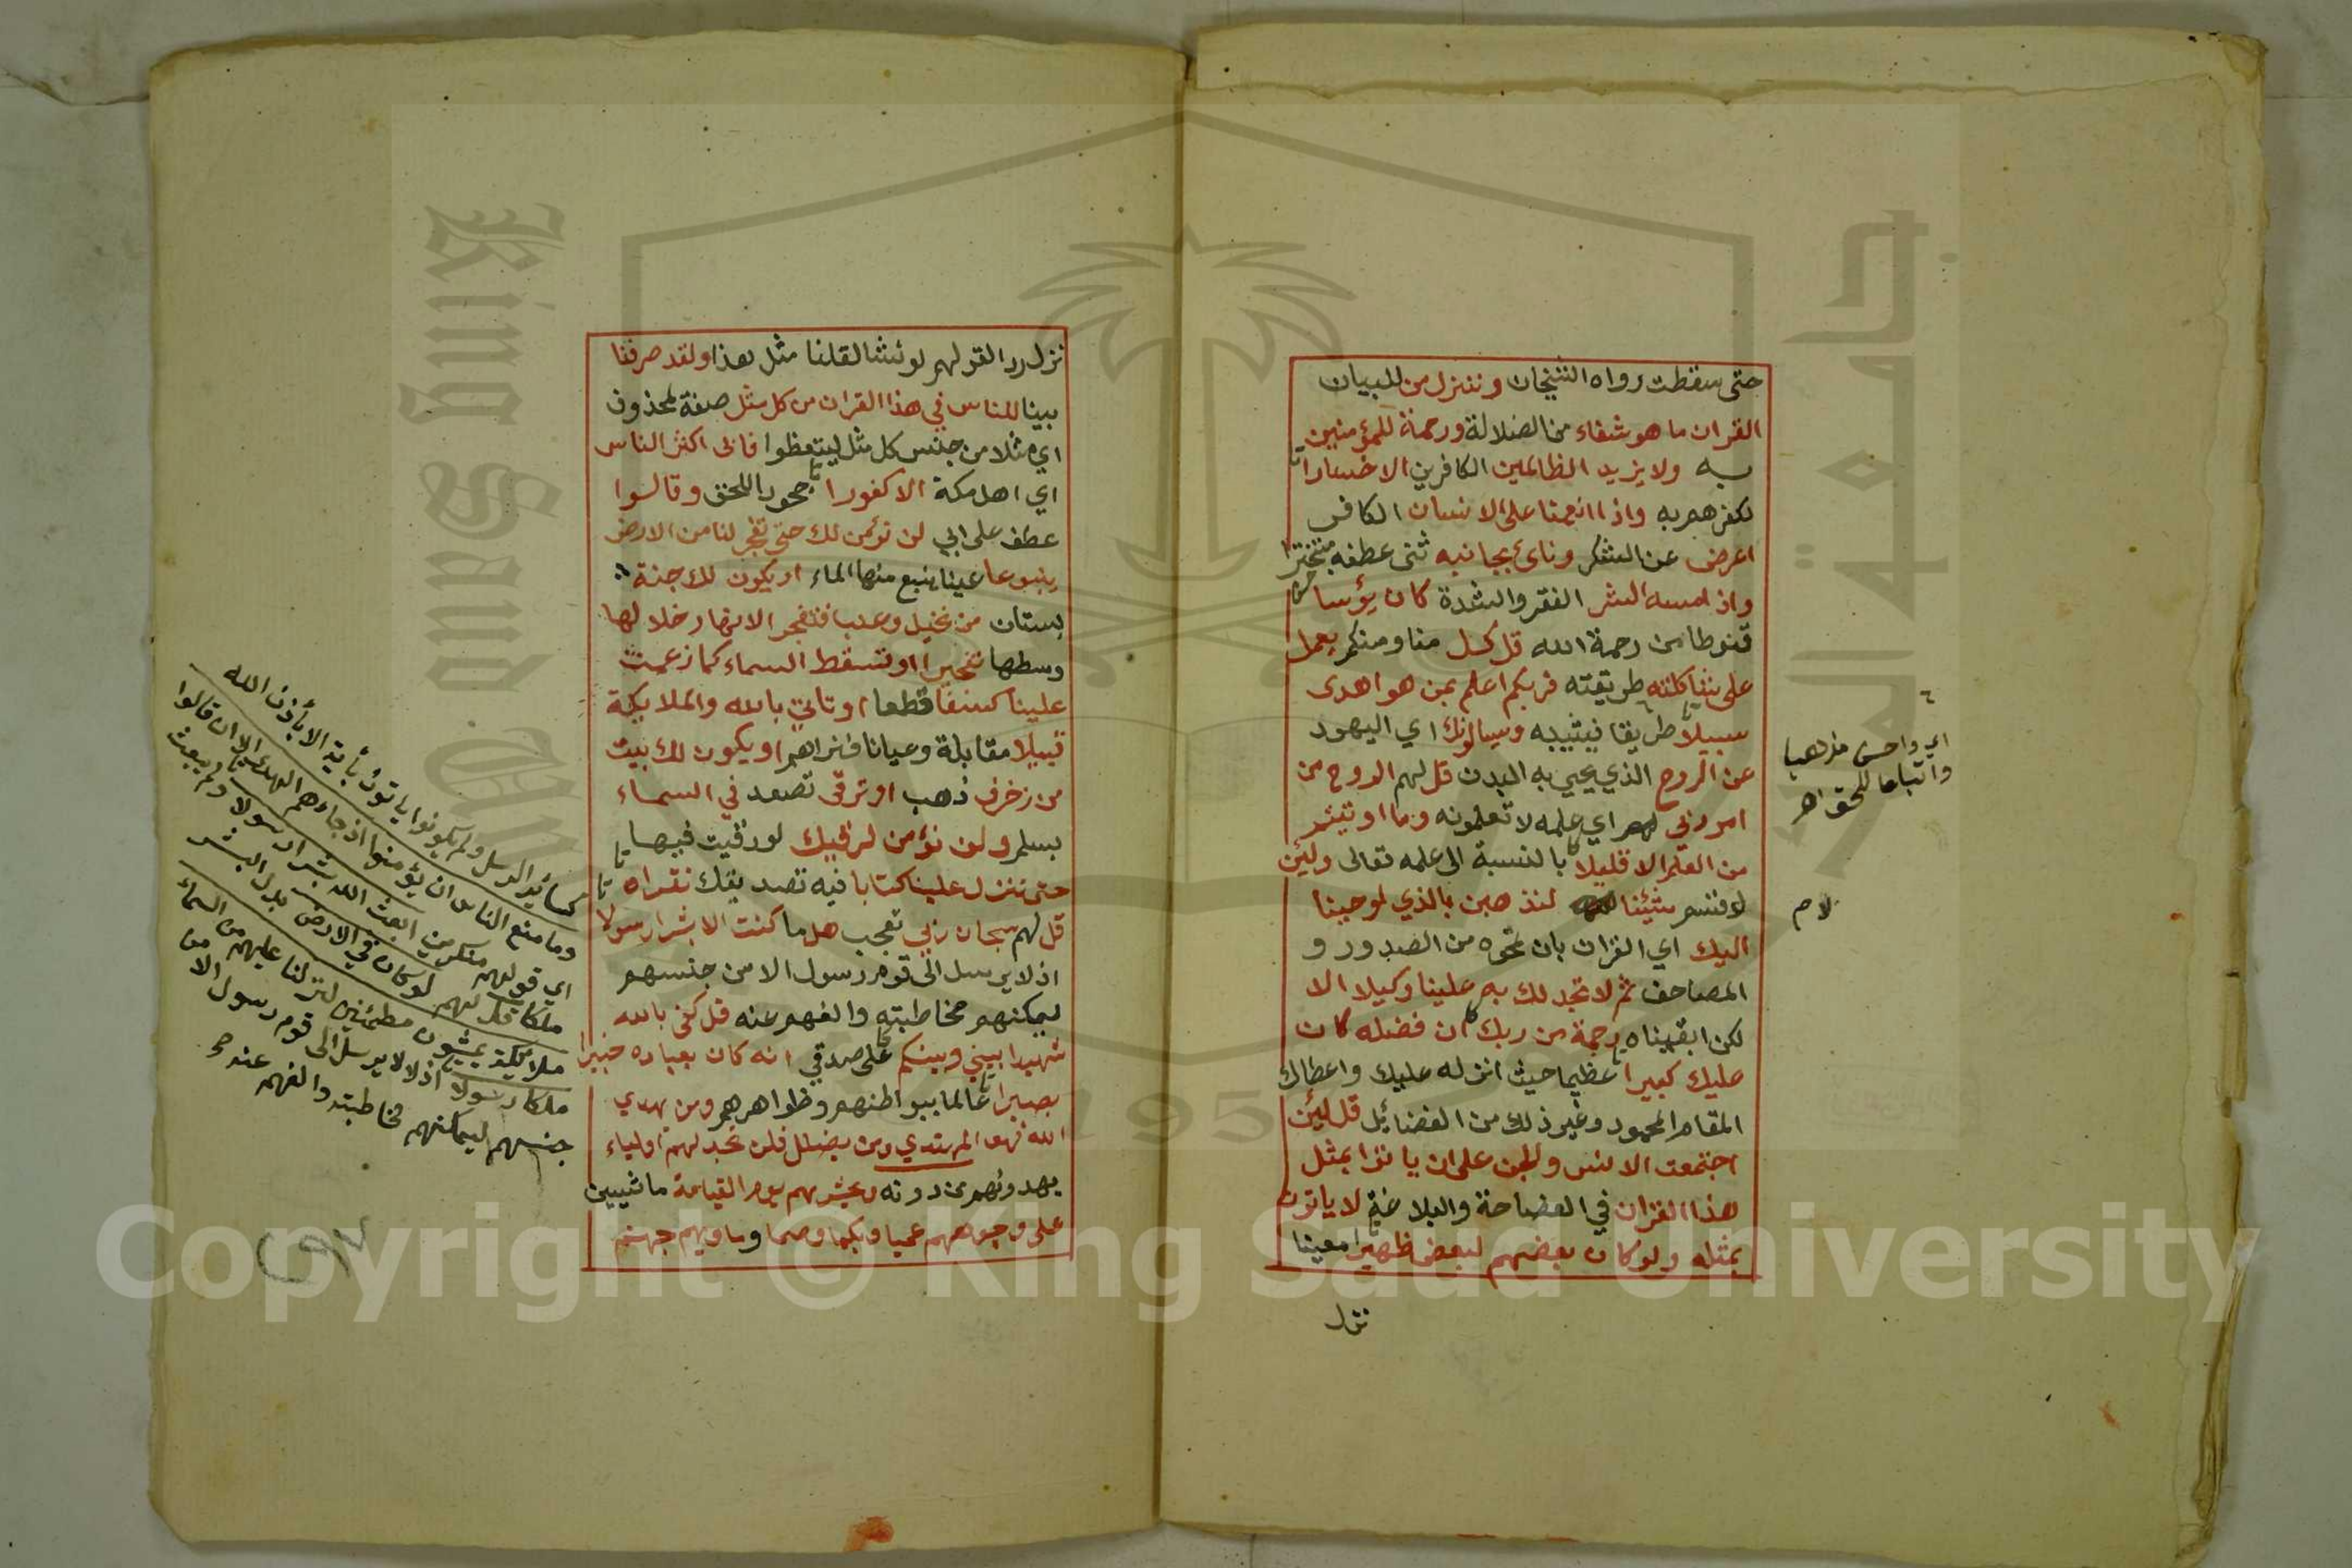 حتى سقطت رواه الشيخان وننزل من للبيان
القران ما هو شفاء من الضلالة ورحمة للمؤمنين
به ولا يزيد الظالمين الكافرين الا خسارا
لكفرهم به واذا انعمنا على الانسان الكافر
اعرض عن الشكر وناى بجانبه ثنى عطفه متبخترا
واذا مسه الشر الفقر والشدة كان يؤسا
قنوطا من رحمة الله قل كل منا ومنكم يعمل
على شاكلته طريقته فربكم اعلم بمن هو اهدى
سبيلا طريقا فيثيبه ويسالونك اي اليهود
عن الروح الذي يحيي به البدن قل لهم الروح من
امر ربي اي علمه لا تعلمونه وما اوتيتم
من العلم الا قليلا بالنسبة الى علمه تعالى ولئن
لام
شئنا لنذهبن بالذي اوحينا
اليك اي القران بان نمحوه من الصدور و
المصاحف ثم لا تجد لك به علينا وكيلا الا
لكن ابقيناه رحمة من ربك ان فضله كان
عليك كبيرا عظيما حيث انزله عليك واعطاك
المقام المحمود وغير ذلك من الفضائل قل لئن
اجتمعت الانس والجن على ان ياتوا بمثل
هذا القران في الفصاحة والبلاغة لا ياتون
بمثله ولو كان بعضهم لبعض ظهيرا معينا
نزل
اي واحسن مذهبا
واتباعا للحق اهـ
نزل ردا لقولهم لو نشا لقلنا مثل هذا ولقد صرفنا
بينا للناس في هذا القران من كل مثل صفة لمحذوف
اي مثلا من جنس كل مثل ليتعظوا فابى اكثر الناس
اي اهل مكة الا كفورا جحودا للحق وقالوا
عطف على ابى لن نؤمن لك حتى تفجر لنا من الارض
ينبوعا عينا ينبع منها الماء او يكون لك جنة
بستان من نخيل وعنب فتفجر الانهار خلالها
وسطها تفجيرا او تسقط السماء كما زعمت
علينا كسفا قطعا او تاتي بالله والملايكة
قبيلا مقابلة وعيانا فنراهم او يكون لك بيت
من زخرف ذهب او ترقى تصعد في السماء
بسلم ولن نؤمن لرقيك لو رقيت فيها
حتى تنزل علينا كتابا فيه تصديقك نقراه
قل لهم سبحان ربي تعجب هل ما كنت الا بشرا رسولا
اذ لا يرسل الى قوم رسول الا من جنسهم
ليمكنهم مخاطبته والفهم عنه قل كفى بالله
شهيدا بيني وبينكم على صدقي انه كان بعباده خبيرا
بصيرا عالما ببواطنهم وظواهرهم ومن يهدي
الله فهو المهتدي ومن يضلل فلن تجد لهم اولياء
يهدونهم من دونه ونحشرهم يوم القيامة ماشيين
على وجوههم عميا وبكما وصما وماويهم جهنم
كسائر الرسل ولم يكونوا ياتون بأية الا بأذن الله
وما منع الناس ان يؤمنوا اذ جاءهم الهدى الا ان قالوا
اي قولهم منكرين ابعث الله بشرا رسولا ولم يبعث
ملكا قل لهم لو كان في الارض بدل البشر
ملائكة يمشون مطمئنين لنزلنا عليهم من السماء
ملكا رسولا اذ لا يرسل الى قوم رسول الا من
جنسهم ليمكنهم مخاطبته والفهم عنه
Copyright © King Saud University
King Saud University
جامعة الملك
195